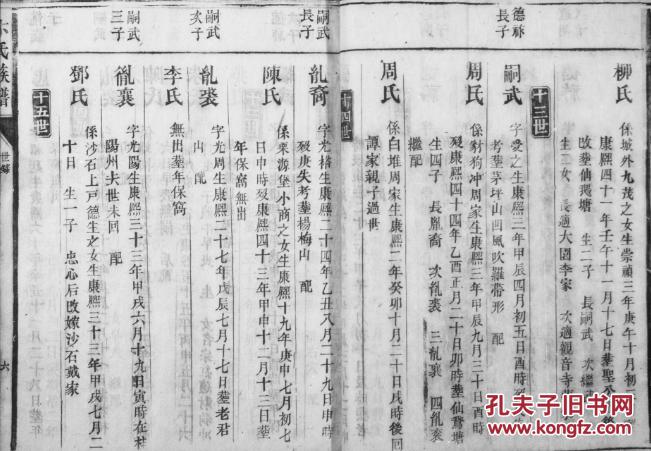 柳氏
係城外九茂之女生崇禎三年庚午十月初
康熙四十一年壬午十一月十七日
改塟仙鵞塘 生二子 長嗣武 次繼
生二女 長適大園李家 次適觀音寺
十三世
德祿
長子
嗣武
字愛之生康熙三年甲辰四月初五日酉時
考塟茅坪山凹風吹羅帶形 配
周氏
係豺狗冲周家生康熙三年甲辰九月三十日酉時
歿康熙四十四年乙酉正月二十日卯時塟仙鵞塘
生四子 長胤裔 次胤裘 三胤襄 四胤
繼配
周氏
係白堆周家生康熙二年癸卯十月二十日戌時後回
譚家親子過世
十四世
嗣武
長子
胤裔
字光裕生康熙二十四年乙丑八月二十九日申時
歿庚失考塟楊梅山 配
陳氏
係栗源堡小商之女生康熙十九年庚申七月初七
日申時歿康熙四十三年甲申十二月十三日塟
年保窩無出
嗣武
次子
胤裘
字光周生康熙二十七年戊辰七月十七日塟老君
山 配
李氏
無出塟年保窩
嗣武
三子
胤襄
字光陽生康熙三十三年甲戌六月十九日寅時在
陽州去世未回 配
鄧氏
係沙石上戸德生之女生康熙三十三年甲戌七月二
十日 生一子 忠心后改嫁沙石戴家
十五世
氏族譜
世系
六
孔夫子旧书网
KONGFZ.COM